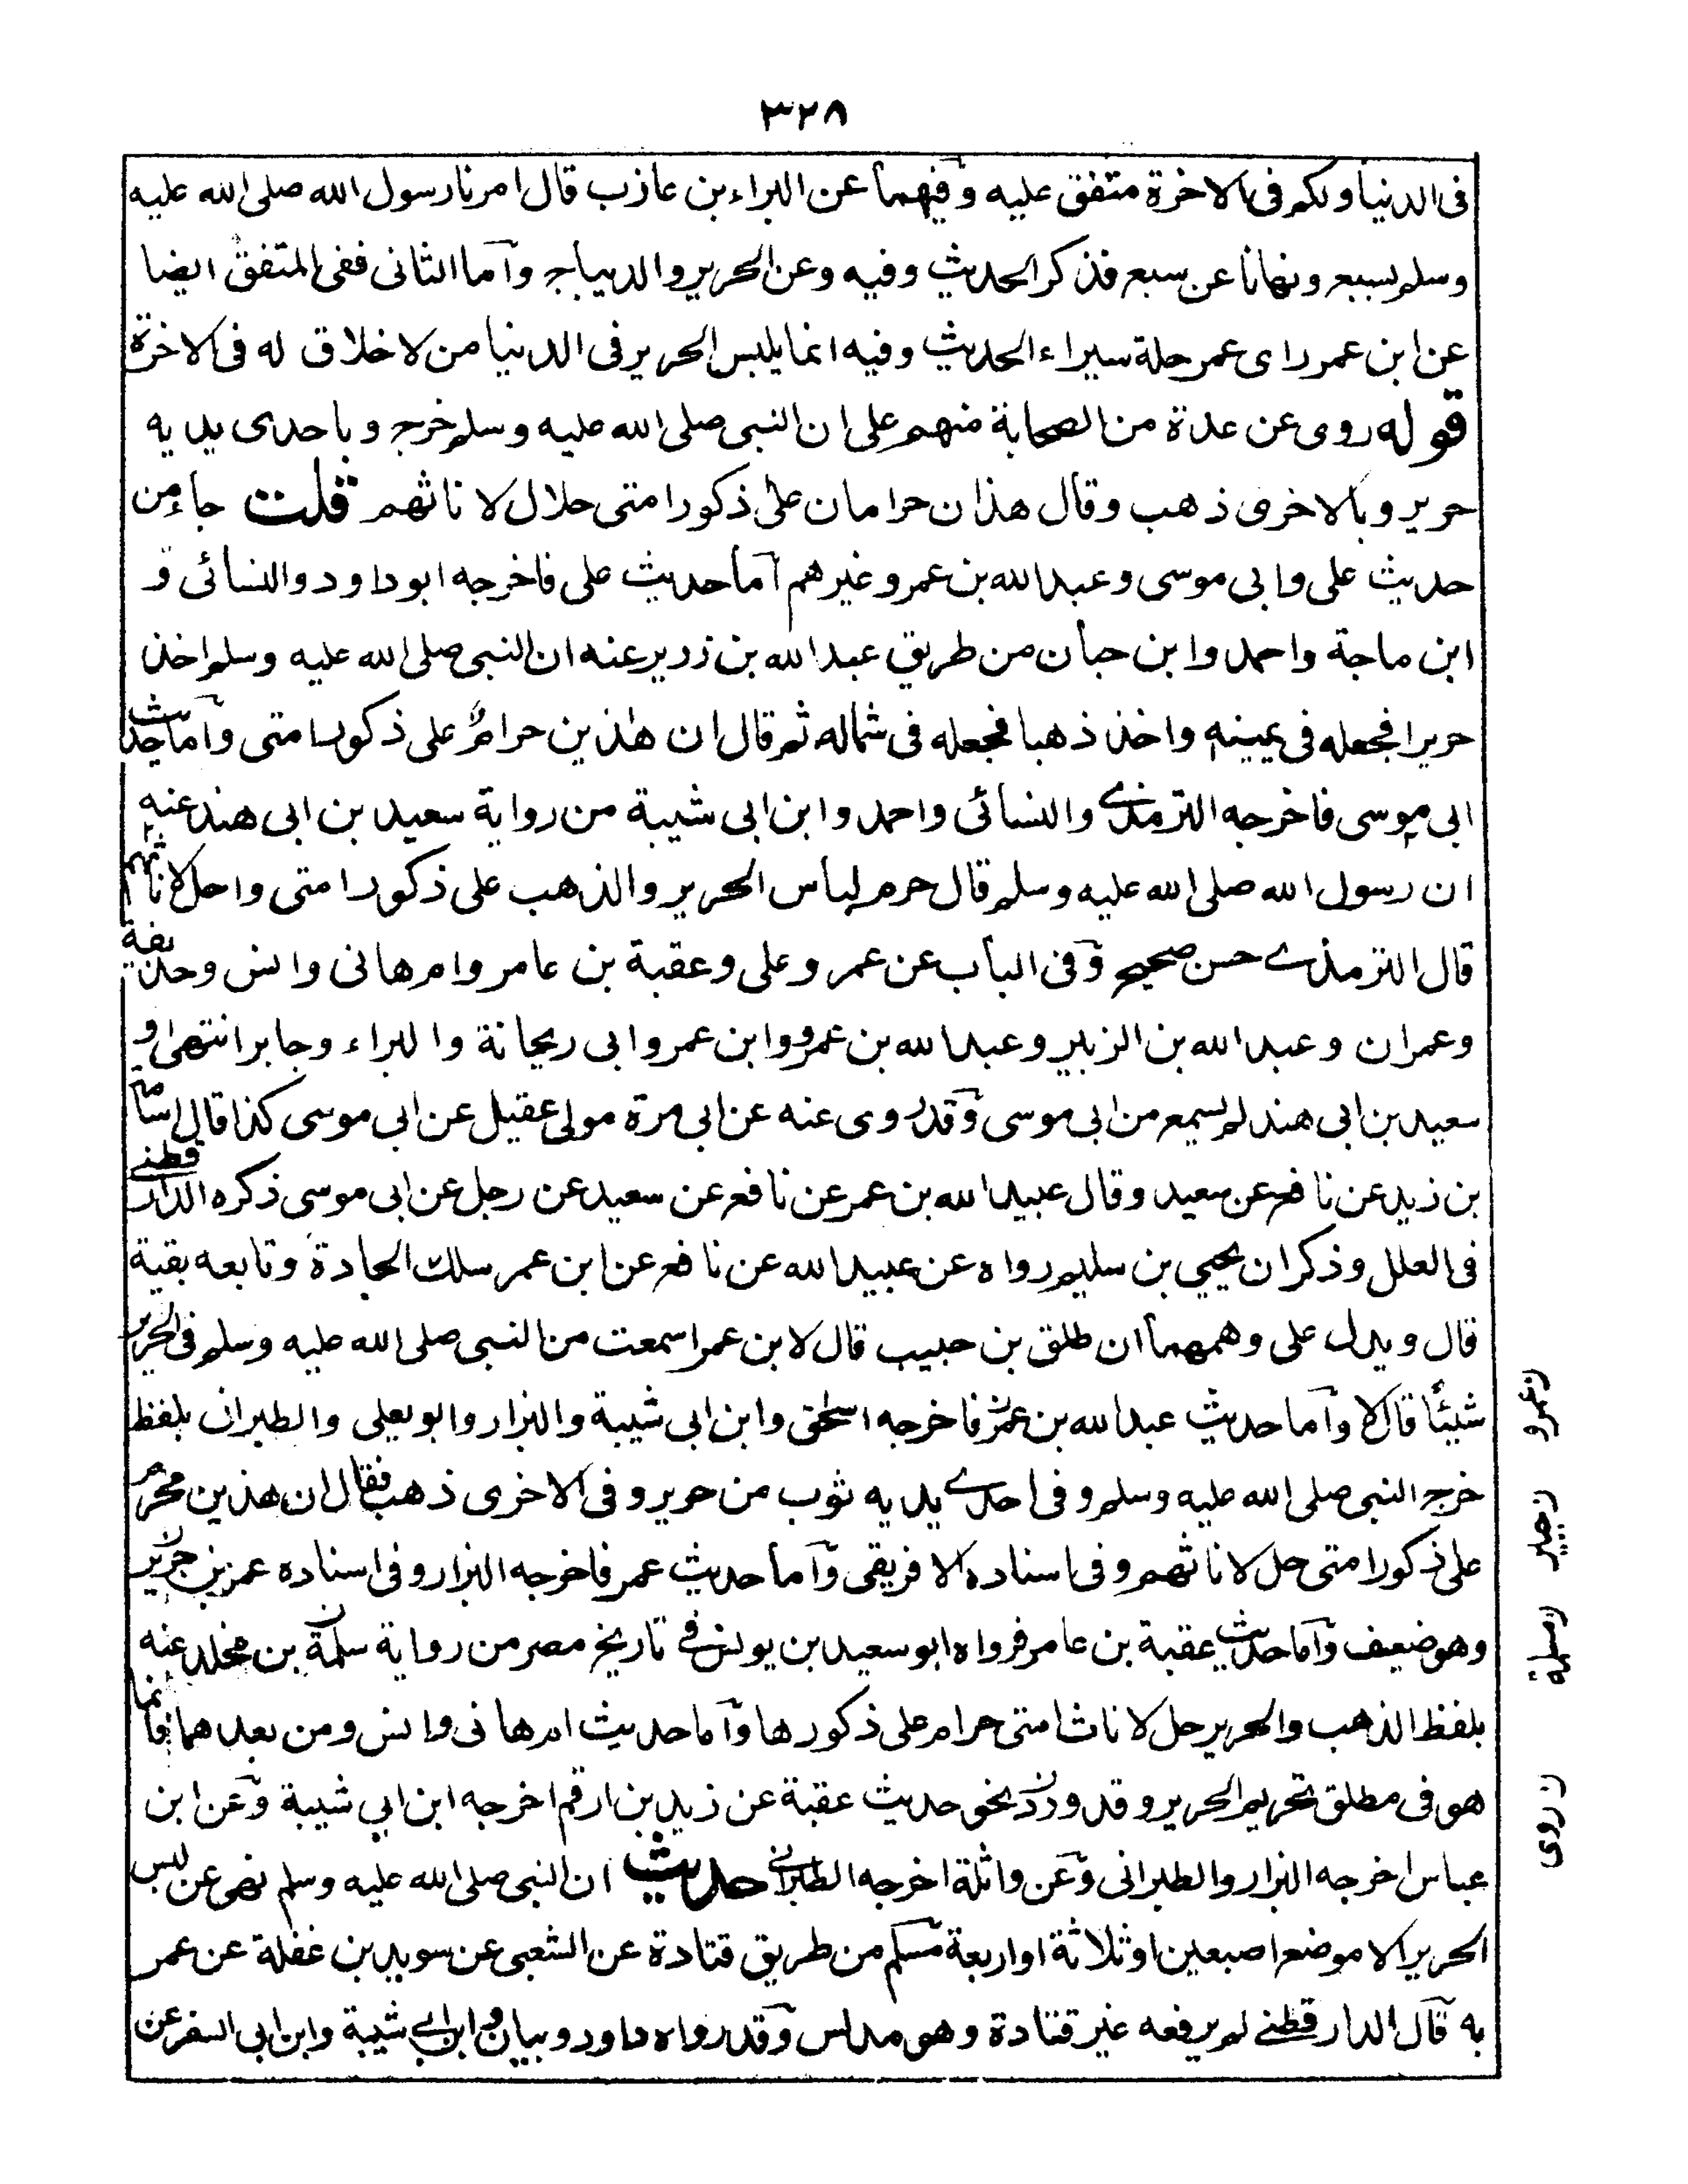 ٣٢٨
فى الدنيا ولكم فى الاخرة متفق عليه وفيهما عن البراء بن عازب قال امرنا رسول الله صلى الله عليه
وسلم بسبع ونهانا عن سبع فذكر الحديث وفيه وعن الحرير والديباج واما الثانى ففى المتفق ايضا
عن ابن عمر راى عمر حلة سيراء الحديث وفيه انما يلبس الحرير فى الدنيا من لا خلاق له فى الاخرة
قوله روى عن عدة من الصحابة منهم على ان النبى صلى الله عليه وسلم خرج وباحدى يديه
حرير وبالاخرى ذهب وقال هذان حرامان على ذكور امتى حلال لاناثهم قلت جاء من
حديث على وابى موسى وعبد الله بن عمر وغيرهم اما حديث على فاخرجه ابو داود والنسائى و
ابن ماجة واحمد وابن حبان من طريق عبد الله بن زرير عنه ان النبى صلى الله عليه وسلم اخذ
حريرا فجعله فى يمينه واخذ ذهبا فجعله فى شماله ثم قال ان هذين حرام على ذكور امتى واما حديث
ابى موسى فاخرجه الترمذى والنسائى واحمد وابن ابى شيبة من رواية سعيد بن ابى هند عنه
ان رسول الله صلى الله عليه وسلم قال حرم لباس الحرير والذهب على ذكور امتى واحل لاناثهم
قال الترمذى حسن صحيح وفى الباب عن عمر وعلى وعقبة بن عامر وام هانى وانس وحذيفة
وعمران وعبد الله بن الزبير وعبد الله بن عمرو وابن عمر وابى ريحانة والبراء وجابر انتهى و
سعيد بن ابى هند لم يسمع من ابى موسى وقد روى عنه عن ابى مرة مولى عقيل عن ابى موسى كذا قال اسامة
بن زيد عن نافع عن سعيد وقال عبيد الله بن عمر عن نافع عن سعيد عن رجل عن ابى موسى ذكره الدارقطنى
فى العلل وذكر ان يحيى بن سليم رواه عن عبيد الله عن نافع عن ابن عمر سلك الجادة وتابعه بقية
قال ويدل على وهمهما ان طلق بن حبيب قال لابن عمر اسمعت من النبى صلى الله عليه وسلم فى الحرير
شيئا قال لا واما حديث عبد الله بن عمر فاخرجه اسحق وابن ابى شيبة والبزار وابو يعلى والطبرانى بلفظ
خرج النبى صلى الله عليه وسلم وفى احدى يديه ثوب من حرير وفى الاخرى ذهب فقال ان هذين محرم
على ذكور امتى حل لاناثهم وفى اسناده الافريقى واما حديث عمر فاخرجه البزار وفى اسناده عمر بن جرير
وهو ضعيف واما حديث عقبة بن عامر فرواه ابو سعيد بن يونس فى تاريخ مصر من رواية سلمة بن مخلد عنه
بلفظ الذهب والحرير حل لاناث امتى حرام على ذكورها واما حديث ام هانى وانس ومن بعدهما فانما
هو فى مطلق تحريم الحرير وقد ورد نحو حديث عقبة عن زيد بن ارقم اخرجه ابن ابي شيبة وعن ابن
عباس اخرجه البزار والطبرانى وعن واثلة اخرجه الطبرانى حديث ان النبى صلى الله عليه وسلم نهى عن لبس
الحرير الا موضع اصبعين او ثلاثة او اربعة مسلم من طريق قتادة عن الشعبى عن سويد بن غفلة عن عمر
به قال الدارقطنى لم يرفعه غير قتادة وهو مدلس وقد رواه داود وبيان وابن ابى شيبة وابن ابى السفر عن
ن عمرو
ن مسلمة
ن روى